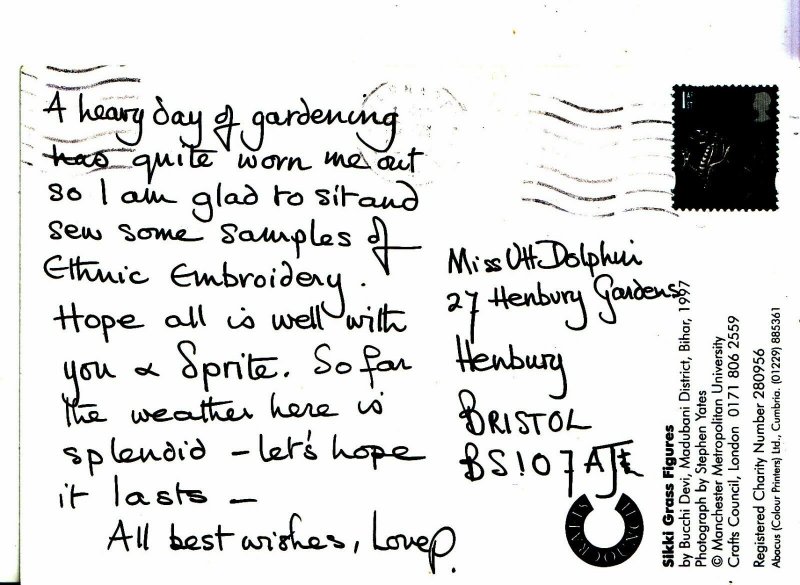 A heavy day of gardening
has quite worn me out
so I am glad to sit and
sew some samples of
Ethnic Embroidery.
Hope all is well with
you & Sprite. So far
the weather here is
splendid – let's hope
it lasts –
All best wishes, Love P.
1st
Miss
Dolphin
27 Henbury Gardens
Henbury
BRISTOL
BS10 7AJ
Sikki Grass Figures
by Bucchi Devi, Madubani District, Bihar, 1997
Photograph by Stephen Yates
© Manchester Metropolitan University
Crafts Council, London 0171 806 2559
Registered Charity Number 280956
Abacus (Colour Printers) Ltd., Cumbria. (01229) 885361